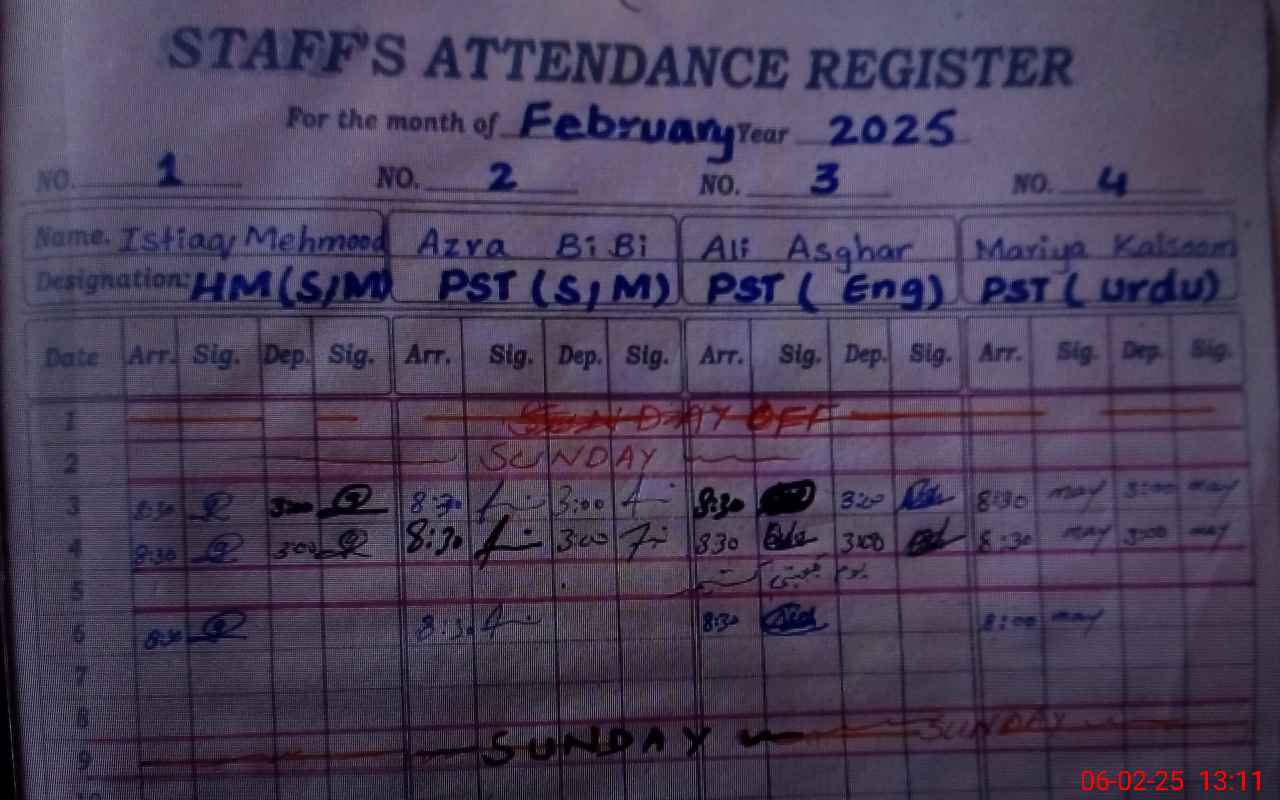 STAFF'S ATTENDANCE REGISTER
For the month of February Year 2025
NO. 1 NO. 2 NO. 3 NO. 4
Name. Istiaq Mehmood Azra Bi Bi Ali Asghar Mariya Kalsoom
Designation: HM (S/M) PST (S/M) PST ( Eng) PST ( Urdu)
Date Arr. Sig. Dep. Sig. Arr. Sig. Dep. Sig. Arr. Sig. Dep. Sig. Arr. Sig. Dep. Sig.
1 SUNDAY OFF
2 SUNDAY
3 8:30 3:00 8:30 3:00 8:30 3:00 8:30 may 3:00 may
4 8:30 3:00 8:30 3:00 830 3:00 8:30 may 3:00 may
5
6 8:30 8:30 8:30 8:00 may
7
8 SUNDAY
9 SUNDAY
10
06-02-25 13:11